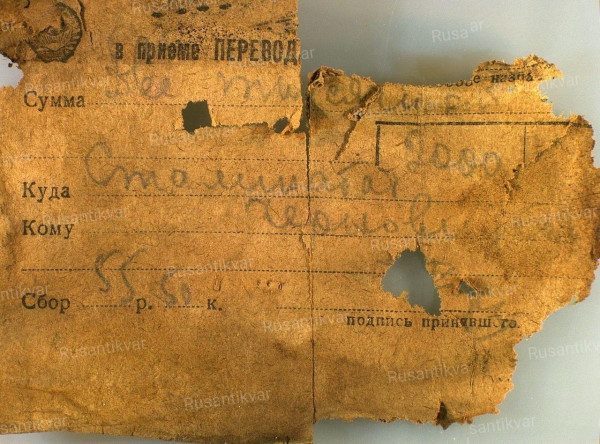 в приеме ПЕРЕВОД
Сумма Две тысячи
2000
Куда Сталинабат
Кому
Сбор 55 р. 50 к.
подпись принявшего.
Rusantikvar